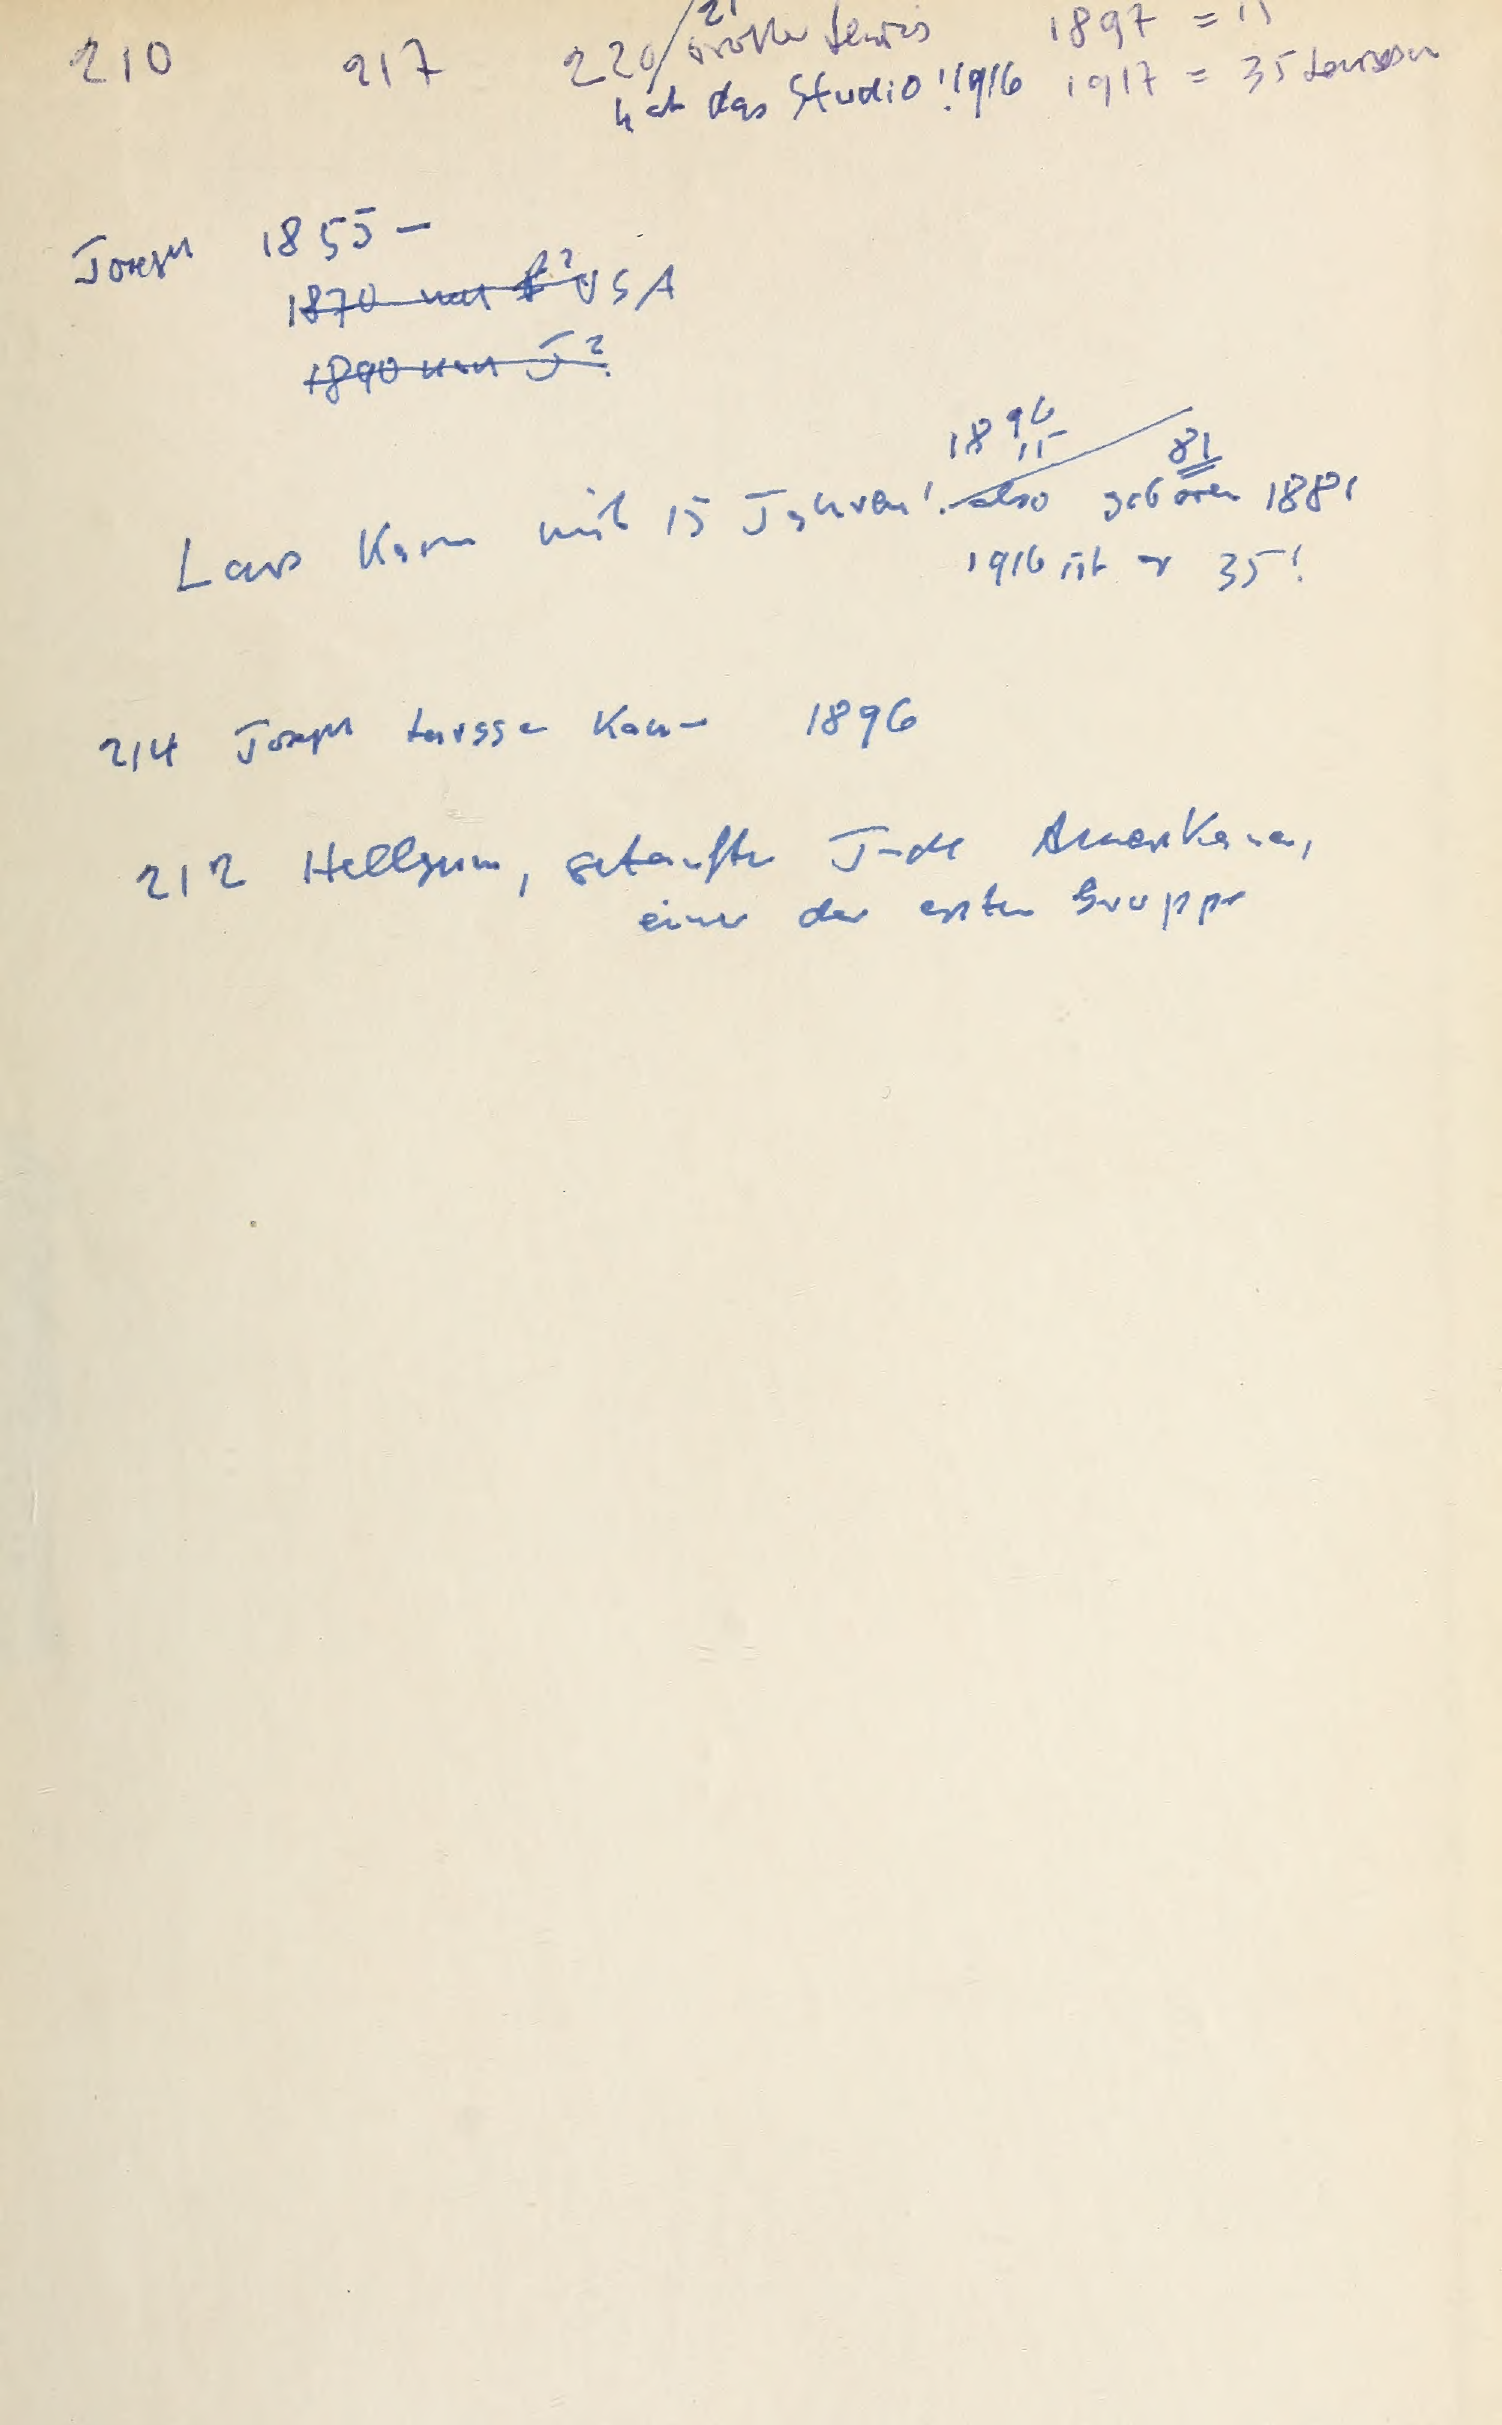 21
210 217 220/ großer Lewis 1897 = 15
hat das Studio! 1916 1917 = 35 Larsson
Joseph 1855 –
1870 nur ? USA
1890 nur J?
1896
15 81
Lars kam mit 15 Jahren! also geboren 1881
1916 ist er 35!
214 Joseph Larsson kam 1896
212 Hellgrim, getaufter Jude Amerikaner,
einer der ersten Gruppe